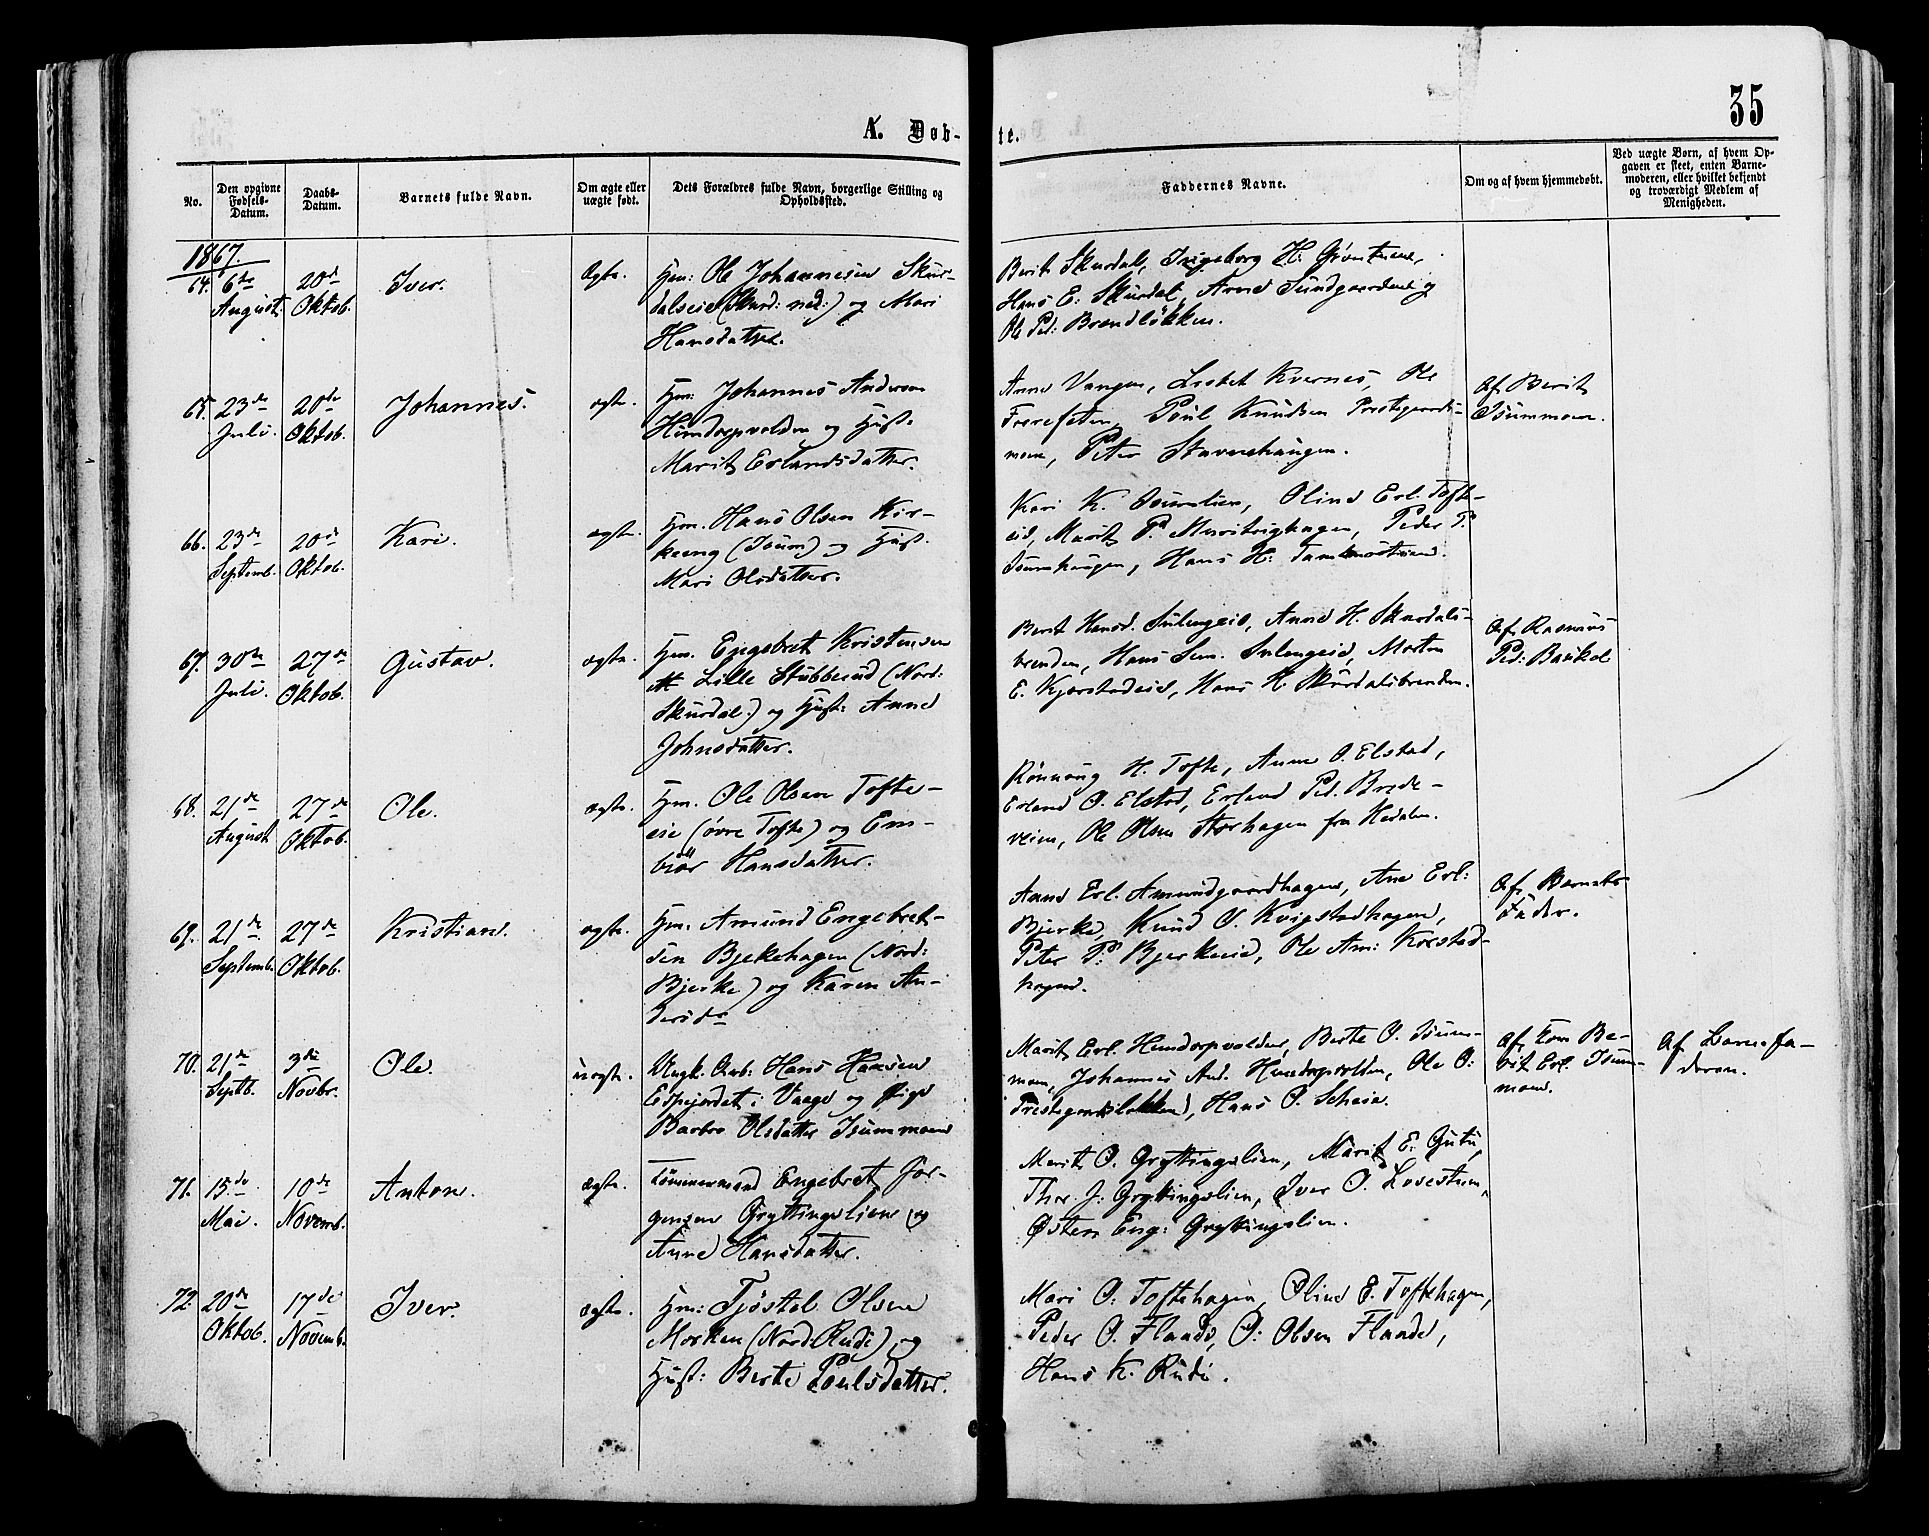 35
A. Døb-
te.
No.
Den opgivne Fødsels-Datum.
Daabs-Datum.
Barnets fulde Navn.
Om ægte eller uægte født.
Dets Forældres fulde Navn, borgerlige Stilling og Opholdssted.
Faddernes Navne.
Om og af hvem hjemmedøbt.
Ved uægte Børn, af hvem Opgaven er skeet, enten Barnemoderen, eller hvilket bekjendt og troværdigt Medlem af Menigheden.
1867.
64. 6te August
20de Oktob.
Iver.
Ægte.
Hm: Ole Johannesen Skur-
dalseie (Skurd: ned:) og Mari
Hansdatter.
Berit Skurdal, Ingeborg H.
Hans E. Skurdal, Anne Sundgaarden og
Ole Ped: Brændløkken.
65. 23de Juli.
20de Oktob.
Johannes.
ægte.
Hm: Johannes Andersen
Hundorpvolden og Hust.
Marit Erlandsdatter.
Anne Vangen, Lisbet Kvernes, Ole
Forrefeten, Poul Knudsen Prestegaards-
moen, Peter Stavnehaugen.
Af Berit
Isummoen.
66. 23de Septemb.
20de Oktob.
Kari.
ægte.
Hm. Hans Olsen Kir-
keeng (Isum) og Hust.
Mari Olsdatter.
Kari K. Isumlien, Oline Erl. Tofte-
eie, Marit P. Peder P.
Isumhaugen, Hans H.
67. 30te Juli.
27de Oktob.
Gustav.
ægte.
Hm. Engebret Kristensen
Lille Stubberud (Nord:
Skurdal.) og Hust: Anne
Johnsdatter.
Berit Hansd. Sulengeie, Anne H. Skurdals-
brenden, Hans Sim. Sulengeie, Morten
E. Kjørstadeie, Hans H. Skurdalsbrenden.
Af Rasmus
Ped: Baukol
68. 21de August
27de Oktob.
Ole.
ægte.
Hm. Ole Olsen Tofte-
eie (øvre Tofte) og Em-
biør Hansdatter.
Rønnaug H. Tofte, Anne O. Elstad,
Erland O. Elstad, Erland Ped. Brede-
veien, Ole Olsen Storhagen fra Hedalen.
69. 21de Septemb.
27de Oktob.
Kristian.
ægte.
Hm: Amund Engebret-
sen Bjekehagen (Nord:
Bjerke) og Karen An-
dersdr
Anne Erl. Amundgaardhagen, Ane Erl:
Bjerke, Knud O. Kvigstadhagen,
Peter P: Bjerkeeie, Ole Am: Korstad-
hagen.
Af Barnets
Fader.
70. 21de Septb.
3die Novbr.
Ole.
uægte.
Ungk. Arb: Hans Hansen
Espejordet i Vaage og Pige
Barbro Olsdatter Isummoen
Marit Erl. Hundorpvolden, Berte O. Isum-
moen, Johannes And. Hundorpvolden, Ole O:
Prestegardsløkken, Hans P. Scheie.
Af Kone Be-
rit Erl. Isum-
moen.
Af Barnefa-
deren.
71. 15de Mai.
10de Novemb.
Anton.
ægte.
Tømmermand Engebret Jør-
gensen Gryttingslien og
Anne Hansdatter.
Marit O. Gryttingslien, Marit E. Gutu,
Thor J: Gryttingslien, Iver O.
Østen Eng: Gryttingslien.
72. 20de Oktob.
17de Novemb.
Iver.
ægte.
Hm: Tjøstel Olsen
Morken (Nord Rudi) og
Hust: Berte Poulsdatter.
Mari O: Toftehagen, Oline E. Toftehagen,
Peder O. Flaade, O: Olsen Flaade,
Hans K. Rudi.